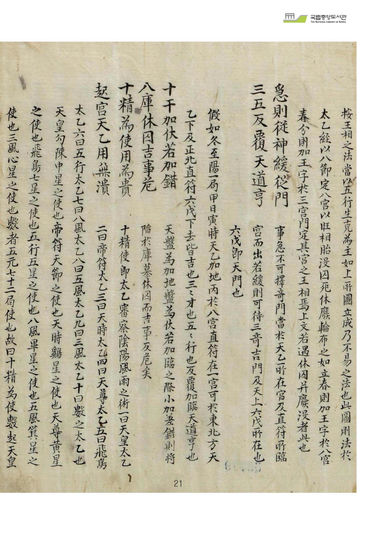 국립중앙도서관
按王相之法當以五行生克爲主如上所圖立成乃不易之法也此圖則法於
太乙經以八節定八宮以旺相胎沒囚死休廢輪布之如立春則加王字於八宮
春分則加王字於三宮門定其宮之王相焉上文若遇休囚幷廢沒者此也
急則從神緩從門
事急不可擇奇門當於天乙所在宮及直符所臨
三五反覆天道亨
宮而出若緩則可待三奇吉門及天上六戊所在也
六戊卽天門也
假如冬至陽局甲日寅時天乙加地丙於八宮直符在一宮可於東北方天
乙下及正北直符六戊下去皆吉也三才也五五行也反覆加臨天道亨也
十干加伏若加錯
天盤爲加地盤爲伏若加臨之際小加差錯則將
八庫休囚吉事危
陷於庫墓休囚而吉事反危矣
十精爲使用爲貴
十精使卽太乙審察陰陽風雨之術一曰天皇太乙
起宮天乙用無潰
二曰帝符太乙三曰天時太乙四曰天尊太乙五曰飛鳥
太乙六曰五行太乙七曰八風太乙八曰五風太乙九曰三風太乙十曰數之太乙也
天皇勾陳中星之使也帝符天節之使也天時觿星之使也天尊黃星
之使也飛鳥七星之使也五行五星之使也八風畢星之使也五風箕星之
使也三風心星之使也數者五元七十二局使也故曰十精爲使數起天皇
21